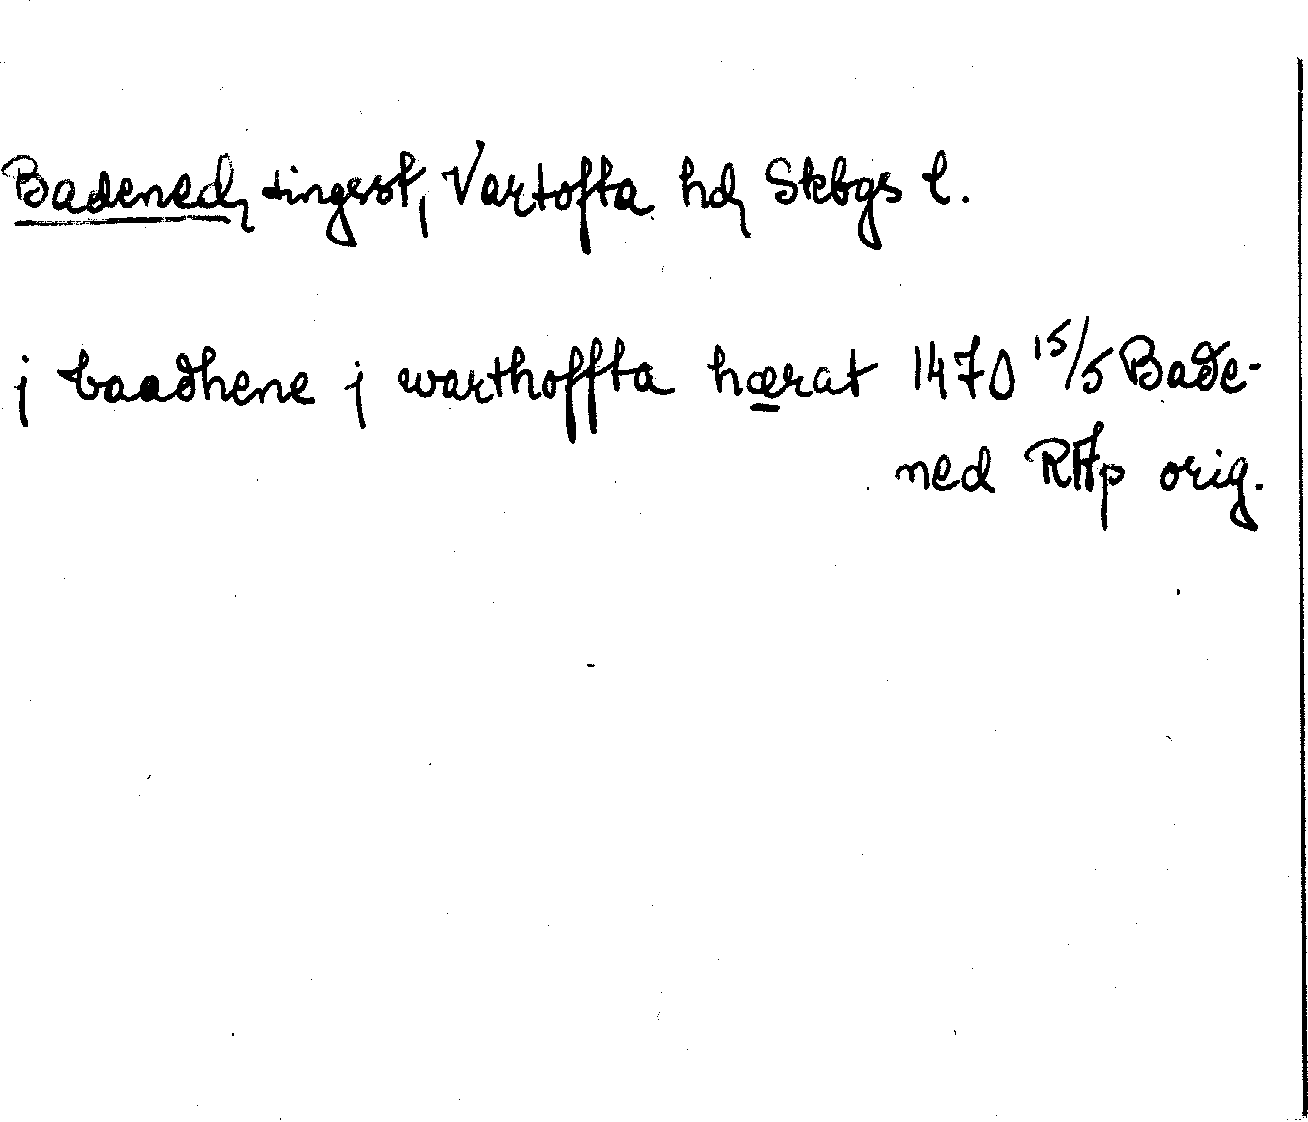 Badened, tingsst, Vartofta hd, Skbgs l.
j baadhene j warthoffta hærat 1470 15/5 Bade-
ned RAp orig.